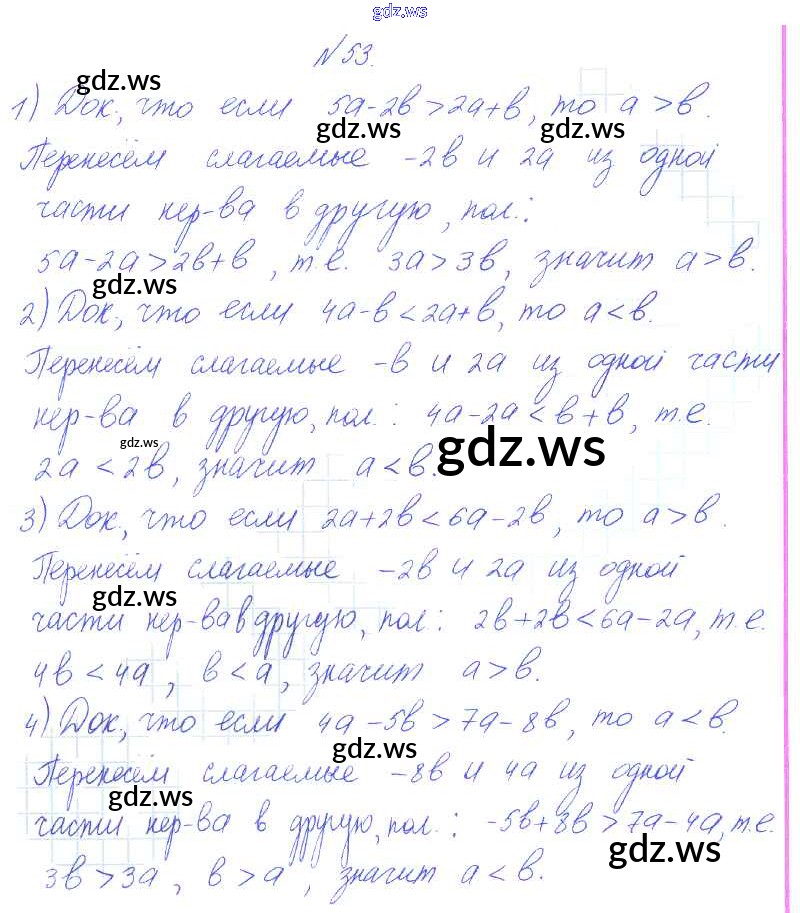 gdz.ws
№ 53.
gdz.ws
1) Док, что если 5a-2b>2a+b, то a>b.
gdz.ws gdz.ws
Перенесём слагаемые -2b и 2a из одной
части нер-ва в другую, пол.:
5a-2a>2b+b, т.е. 3a>3b, значит a>b.
gdz.ws
2) Док, что если 4a-b<2a+b, то a<b.
Перенесём слагаемые -b и 2a из одной части
нер-ва в другую, пол.: 4a-2a<b+b, т.е.
gdz.ws gdz.ws
2a<2b, значит a<b.
3) Док, что если 2a+2b<6a-2b, то a>b.
Перенесём слагаемые -2b и 2a из одной
gdz.ws
части нер-ва в другую, пол.: 2b+2b<6a-2a, т.е.
4b<4a, b<a, значит a>b.
4) Док, что если 4a-5b>7a-8b, то a<b.
gdz.ws
Перенесём слагаемые -8b и 4a из одной
gdz.ws
части нер-ва в другую, пол.: -5b+8b>7a-4a, т.е.
gdz.ws
3b>3a, b>a, значит a<b.